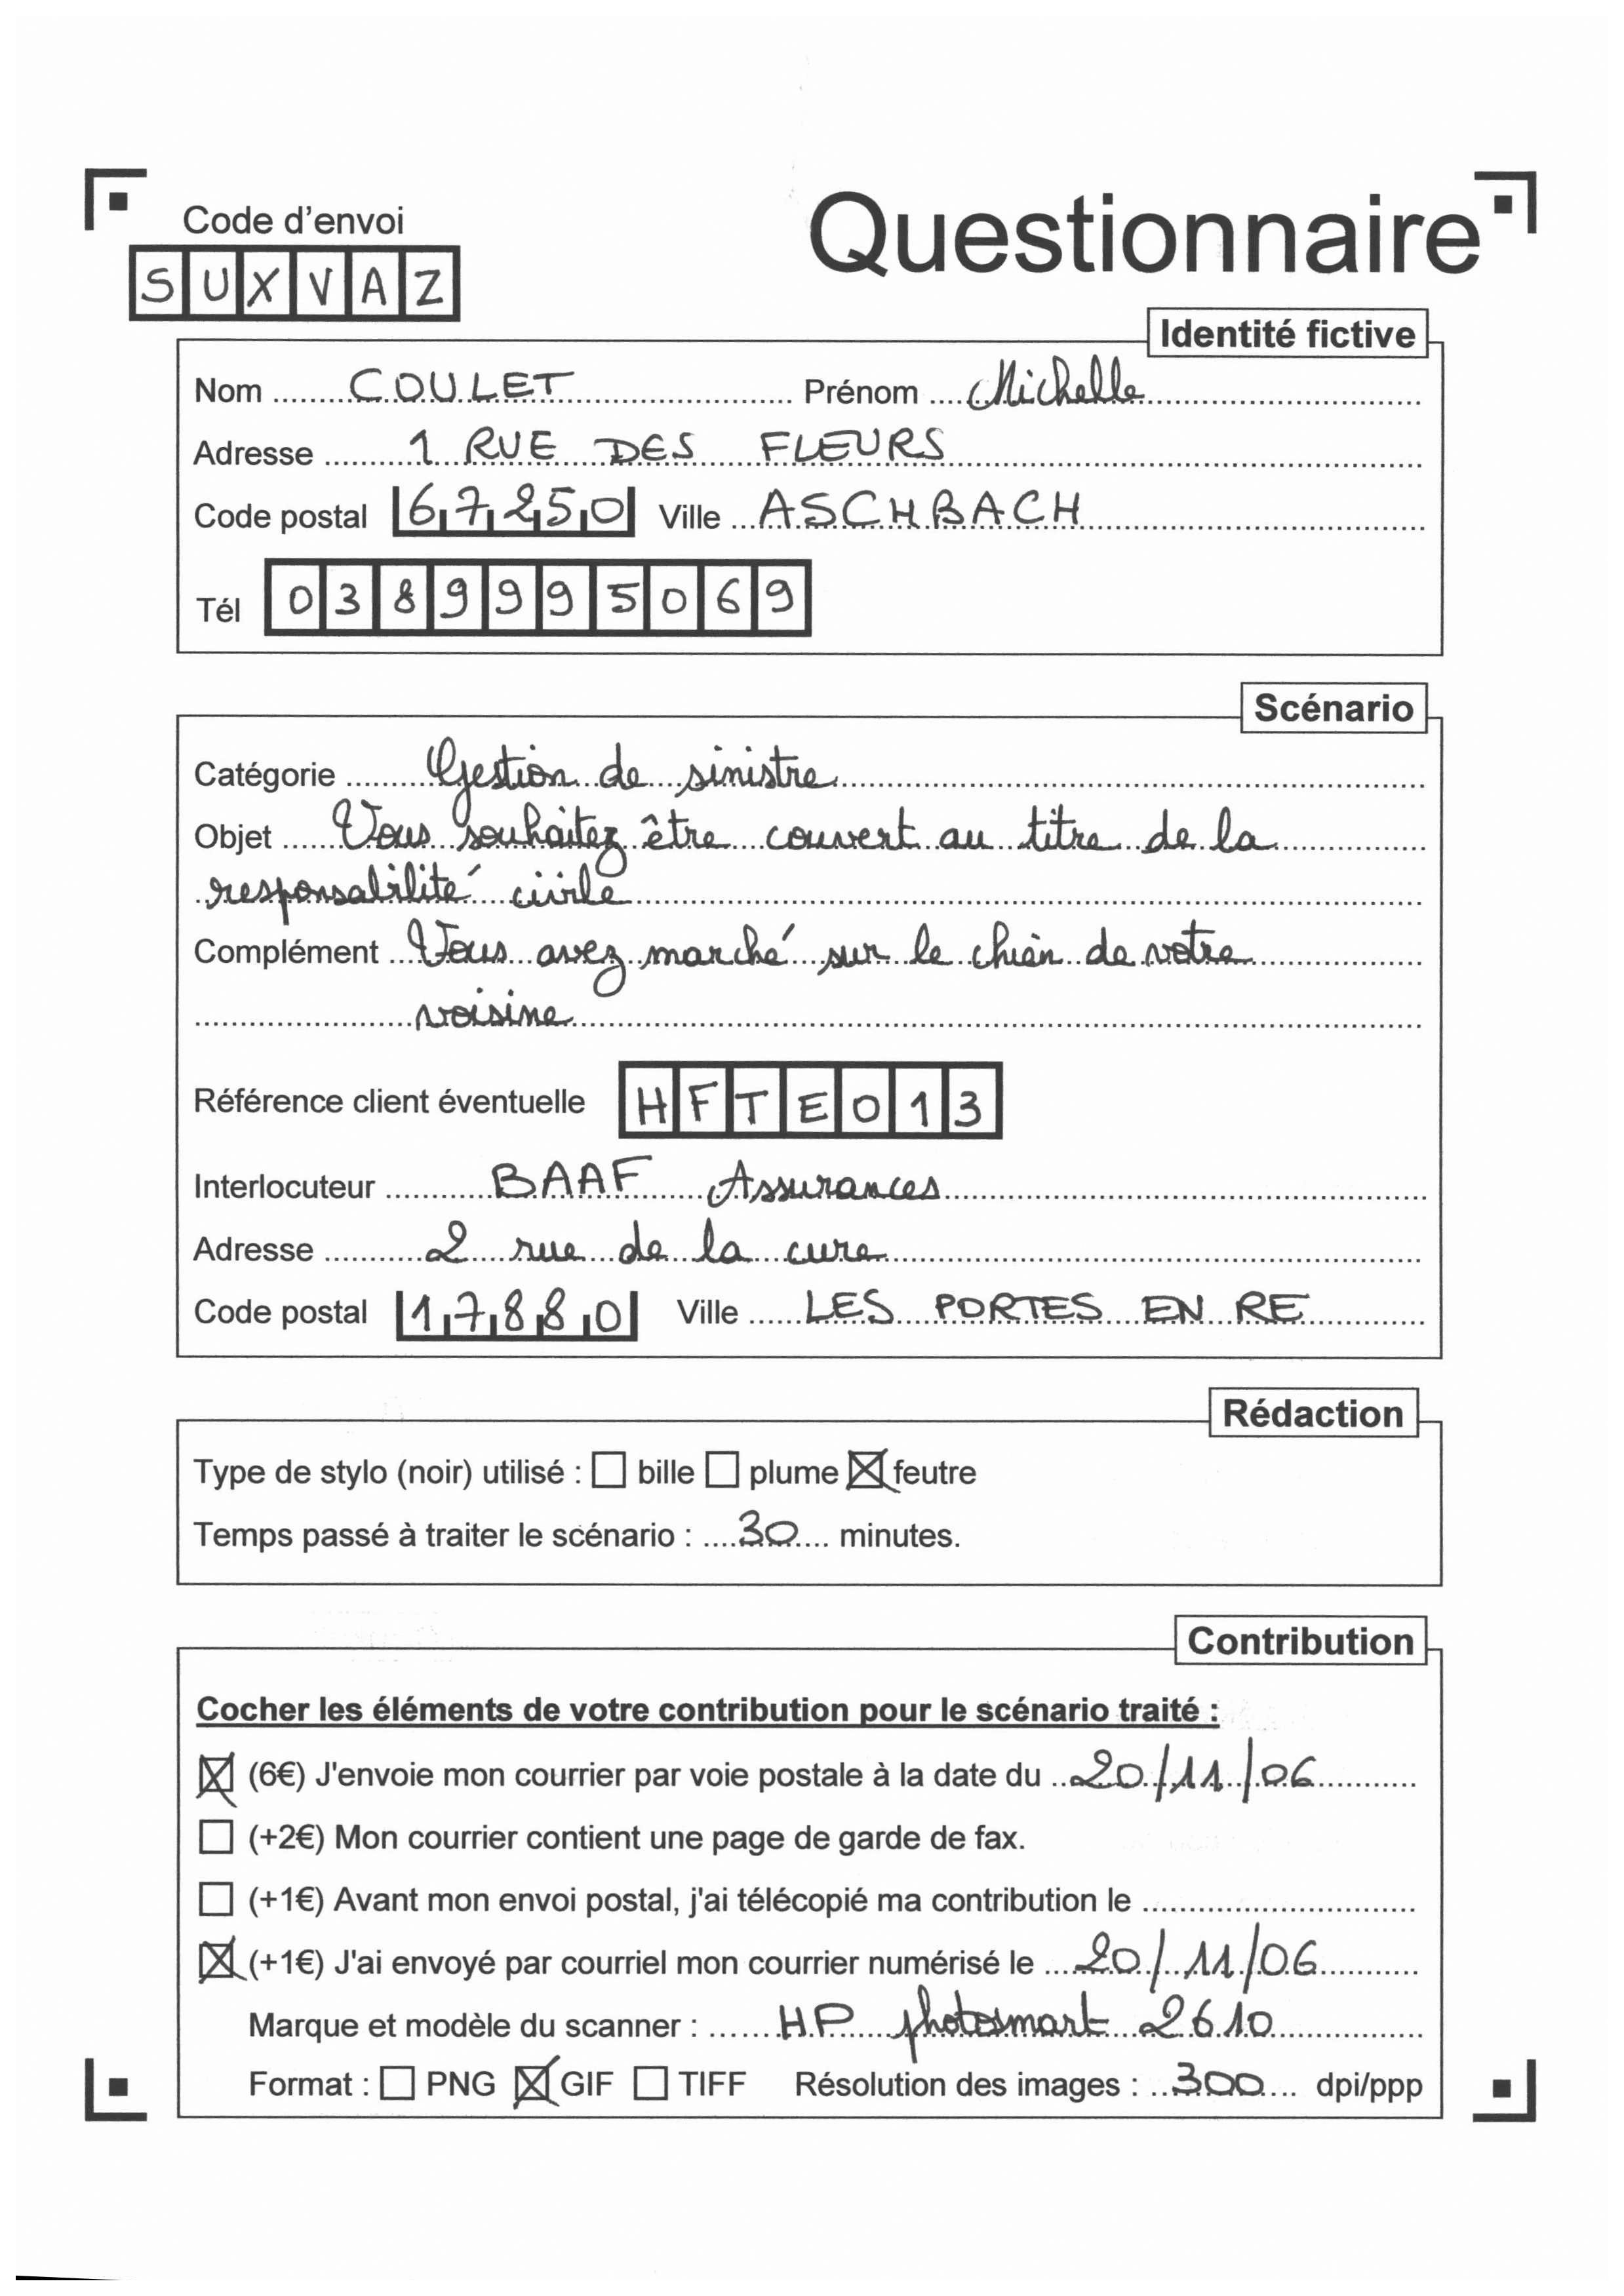 Code d'envoi
Questionnaire
SUXVAZ
Identité fictive
Nom COULET Prénom Michelle
Adresse 1 RUE DES FLEURS
Code postal 67250 Ville ASCHBACH
Tél 0389995069
Scénario
Catégorie Gestion de sinistre
Objet Vous souhaitez être couvert au titre de la
responsabilité civile
Complément Vous avez marché sur le chien de votre
voisine
Référence client éventuelle HFTE013
Interlocuteur BAAF Assurances
Adresse 2 rue de la cure
Code postal 17880 Ville LES PORTES EN RE
Rédaction
Type de stylo (noir) utilisé : ☐ bille ☐ plume ☒ feutre
Temps passé à traiter le scénario : 30 minutes.
Contribution
Cocher les éléments de votre contribution pour le scénario traité :
☒ (6€) J'envoie mon courrier par voie postale à la date du 20/11/06
☐ (+2€) Mon courrier contient une page de garde de fax.
☐ (+1€) Avant mon envoi postal, j'ai télécopié ma contribution le
☒ (+1€) J'ai envoyé par courriel mon courrier numérisé le 20/11/06
Marque et modèle du scanner : HP photosmart 2610
Format : ☐ PNG ☒ GIF ☐ TIFF Résolution des images : 300 dpi/ppp